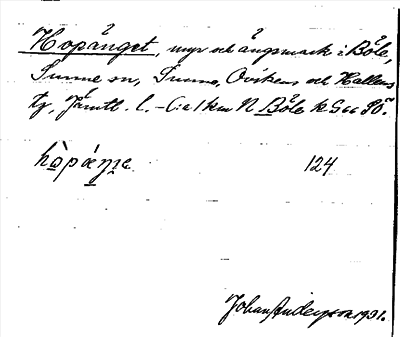 Hopänget, myr och ängsmark i Böle,
Sunne sn, Sunne, Ovikens och Hallens
tg, Jämtl. l. – C:a 1 km N Böle k S
hòpáŋe 124
Johan Anderson 1931.